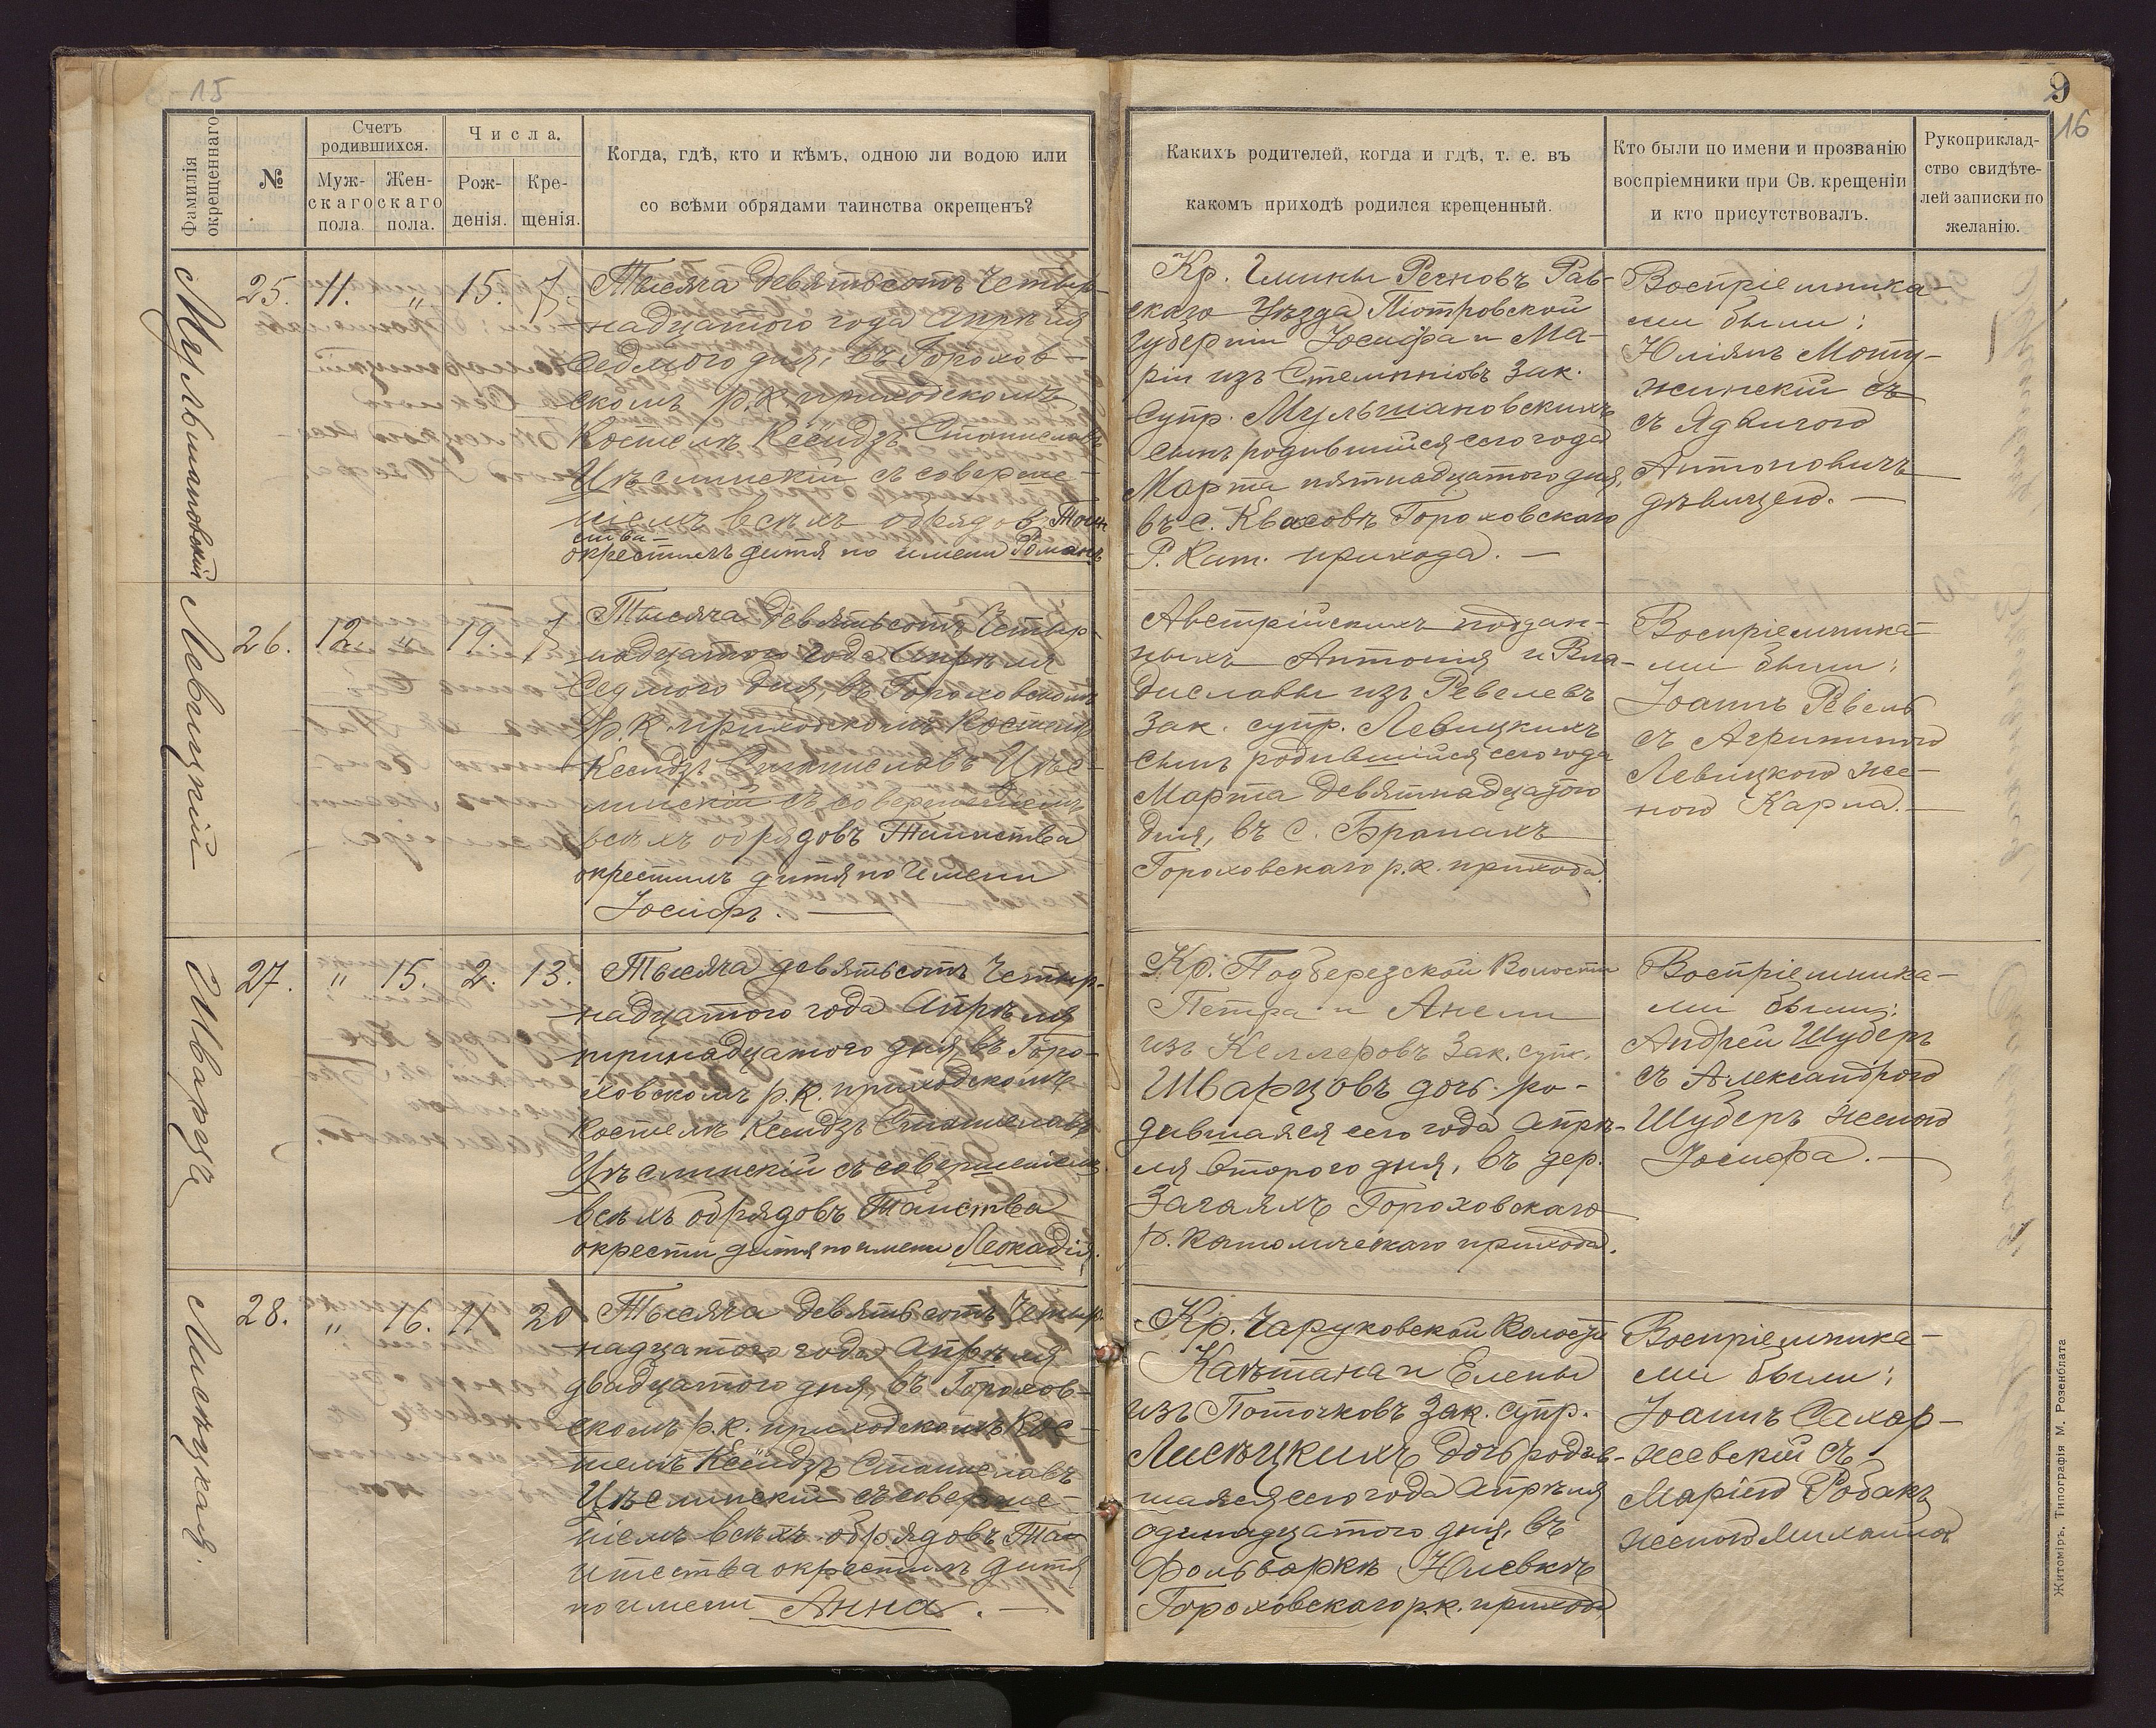 15
9
16
Фамилія окрещеннаго
№
Счетъ родившихся.
Муж-скаго пола.
Жен-скаго пола.
Числа.
Рож-денія.
Кре-щенія.
Когда, гдѣ, кто и кѣмъ, одною ли водою или
со всѣми обрядами таинства окрещенъ?
Какихъ родителей, когда и гдѣ, т. е. въ
какомъ приходѣ родился крещенный.
Кто были по имени и прозванію
воспріемники при Св. крещеніи
и кто присутствовалъ.
Рукоприклад-
ство свидѣте-
лей записки по
желанію.
Мульшановскій
25. 11. " 15. 7.
Тысяча девятьсотъ четыр-
надцатого года Апрѣля
седмого дня, въ Горохов-
скомъ р. к. приходскомъ
Костелѣ Ксендзъ Станиславъ
Цѣслинскій съ соверше-
ніемъ всѣхъ обрядовъ Таин
ства
окрестилъ дитя по имени Романъ
Кр. Гмины Регновъ Рав-
скаго Уѣзда Піотровской
губерніи Іосифа и Ма-
ріи изъ Стемпнювъ зак.
супр. Мульшановскихъ
сынъ родившійся сего года
Марта пятнадцатого дня,
въ с. Квасовъ Гороховскаго
Р. Кат. прихода. —
Воспріемника-
ми были:
Юліянъ Моту-
жинскій съ
съ Ядвигою
Антоновичъ
дѣвицею. —
Левицкій
26. 12. " 19. 7
Тысяча девятьсотъ четыр-
надцатого года Апрѣля
седмого дня, въ Гороховскомъ
р. к. приходскомъ Костелѣ
Ксендзъ Станиславъ Цѣс-
линскій съ совершеніемъ
всѣхъ обрядовъ Таинства
окрестилъ дитя по имени
Іосифъ. —
Австрійскихъ поддан-
ныхъ Антонія и Вла-
диславы изъ Ревелевъ
зак. супр. Левицкихъ
сынъ родившійся сего года
Марта девятнадцатого
дня, въ с. Бранахъ
Гороховскаго р. к. прихода.
Воспріемника-
ми были:
Іоаннъ Ревель
съ Агрипиною
Левицкою же-
ною Карла. —
Шварцъ
27. " 15. 2. 13.
Тысяча девятьсотъ четыр-
надцатого года Апрѣля
тринадцатого дня, въ Горо-
ховскомъ р. к. приходскомъ
Костелѣ Ксендзъ Станиславъ
Цѣслинскій съ совершеніемъ
всѣхъ обрядовъ Таинства
окрести дитя по имени Леокадія.
Кр. Подберезской Волости
Петра и Анели
изъ Келлеровъ зак. супр.
Шварцовъ дочь ро-
дившаяся сего года Апрѣ-
ля второго дня, въ дер.
Загаяхъ Гороховскаго
р. католическаго прихода.
Воспріемника-
ми были:
Андрей Шуберъ
съ Александрою
Шуберъ женою
Іосифа. —
Лисѣцкая.
28. " 16. 11 20
Тысяча девятьсотъ четыр-
надцатого года Апрѣля
двадцатого дня, въ Горохов-
скомъ р. к. приходскомъ Кос-
телѣ Ксендзъ Станиславъ
Цѣслинскій съ соверше-
ніемъ всѣхъ обрядовъ Таи
нства окрестилъ дитя
по имени Анна. —
Кр. Чаруковской Волости
Каѣтана и Елены
изъ Поточковъ зак. супр.
Лисѣцкихъ дочь родив-
шаяся сего года Апрѣля
одинадцатого дня, въ
фольваркѣ Юлевкѣ
Гороховскаго р. к. прихода
Воспріемника-
ми были:
Іоаннъ Сахар-
жевскій съ
Маріею Робакъ
женою Михаила
Житоміръ. Типографія М. Розенблата